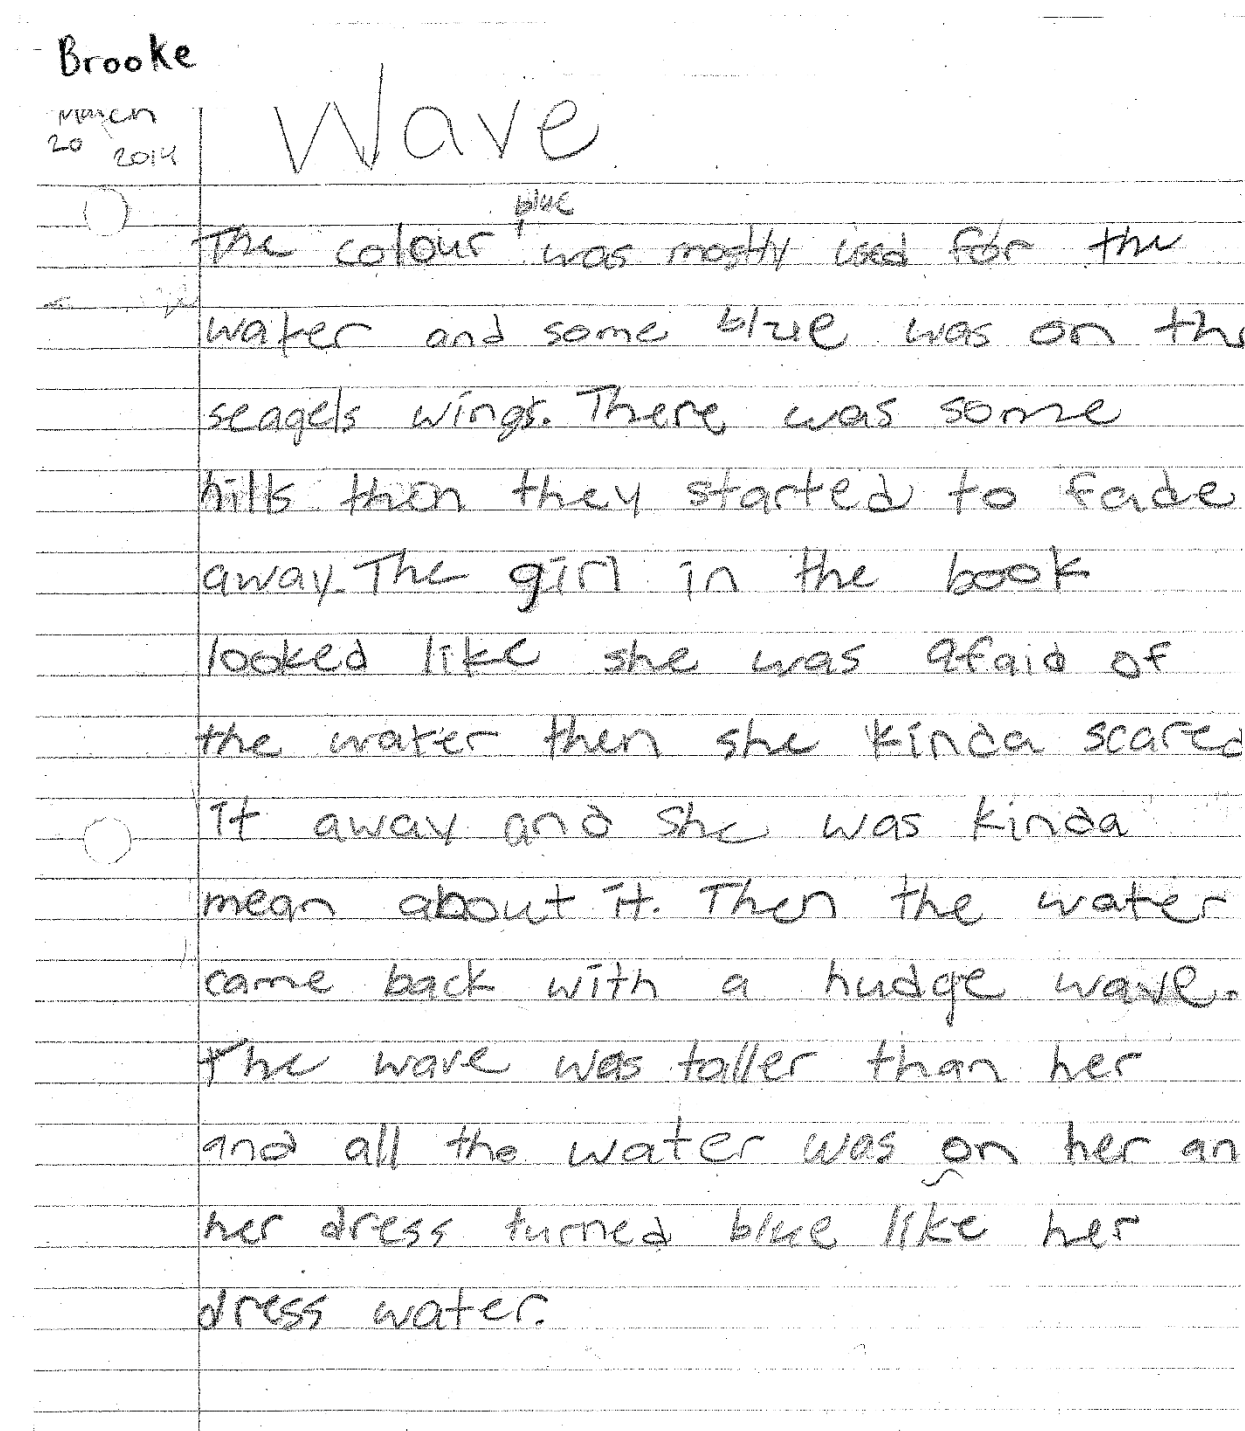 Brooke
March
20 2014
Wave
blue
The colour was mostly used for the
water and some blue was on the
seagels wings. There was some
hills then they started to fade
away. The girl in the book
looked like she was afaid of
the water then she kinda scared
it away and she was kinda
mean about it. Then the water
came back with a hudge wave.
The wave was taller than her
and all the water was on her an
her dress turned blue like her
dress water.